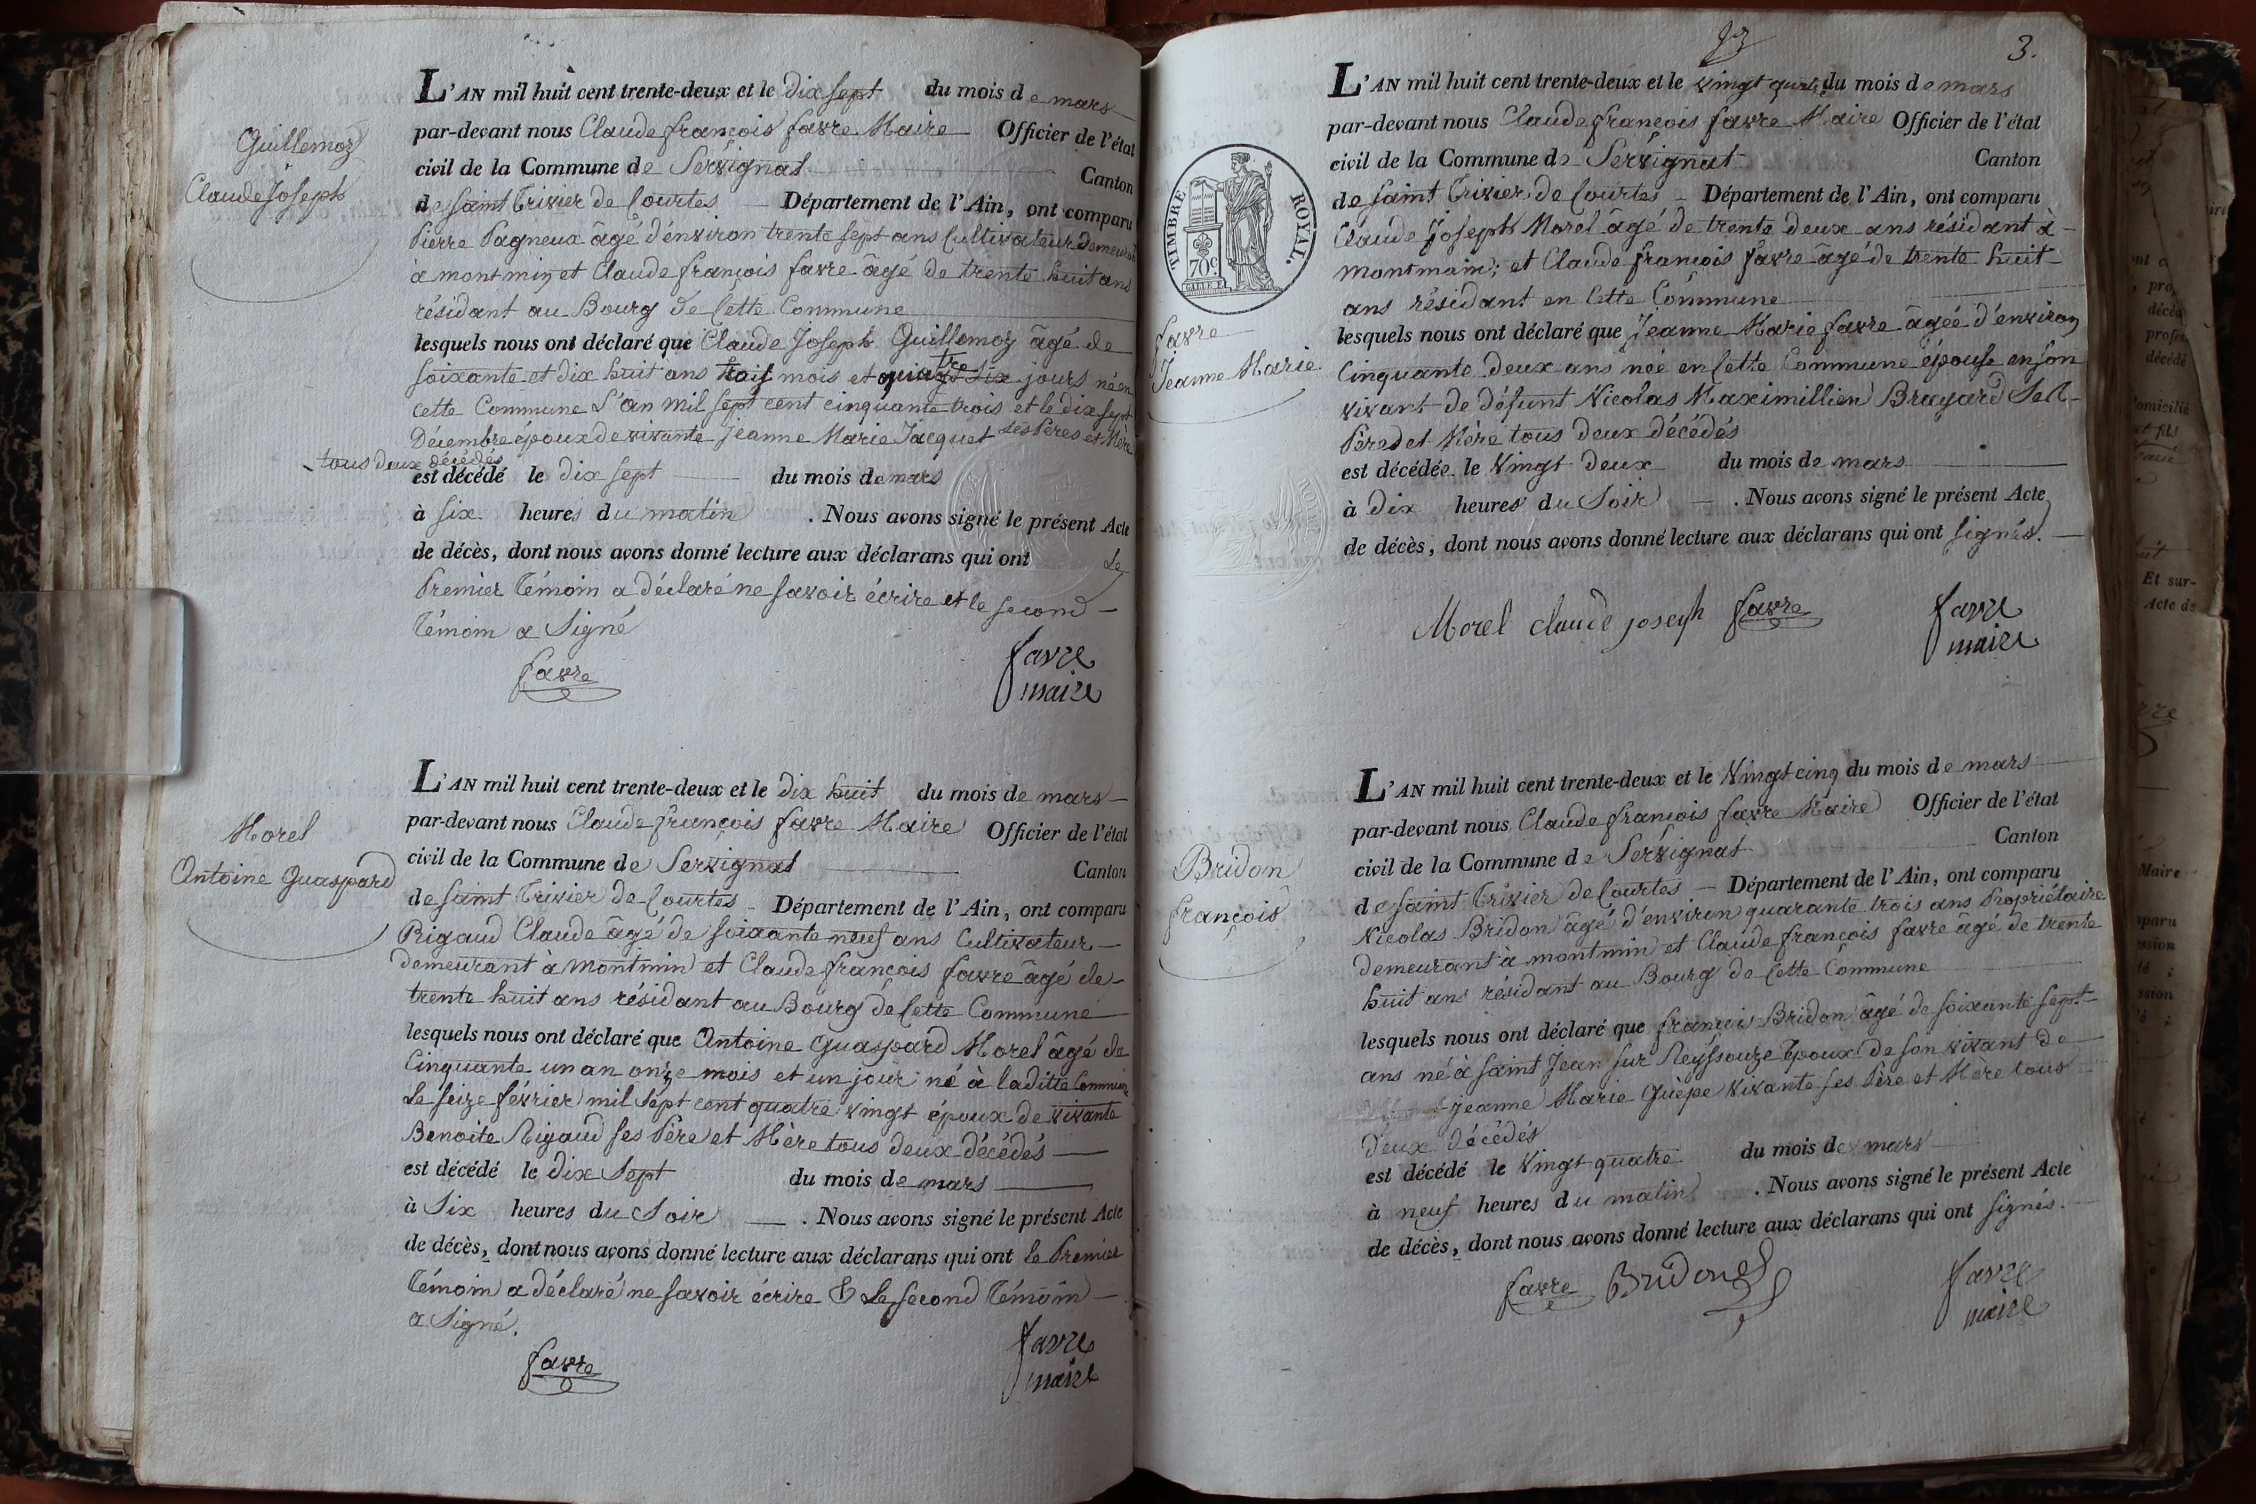 Guillemoz
Claude Joseph
L'AN mil huit cent trente-deux et le dix sept du mois de mars
par-devant nous Claude françois favre Maire Officier de l'état
civil de la Commune de Servignat Canton
de saint Trivier de Courtes Département de l'Ain, ont comparu
Pierre Pagneux âgé d'environ trente sept ans Cultivateur Demeurant
à montmin et Claude françois favre âgé de trente huit ans
résidant au Bourg de Cette Commune
lesquels nous ont déclaré que Claude Joseph Guillemoz âgé de
soixante et dix huit ans trois mois et jours né en
cette Commune L'an mil sept cent cinquante trois et le dix sept
Décembre époux de vivante Jeanne Marie Jacquet ses Pères et Mère
tous deux décédés
est décédé le dix sept du mois de mars
à six heures du matin . Nous avons signé le présent Acte
de décès, dont nous avons donné lecture aux déclarans qui ont Le
Premier Témoin a déclaré ne savoir écrire et le second
Témoin a Signé
favre
favre
maire
Morel
Antoine Guaspard
L'AN mil huit cent trente-deux et le dix huit du mois de mars
par-devant nous Claude françois favre Maire Officier de l'état
civil de la Commune de Servignat Canton
de saint Trivier de Courtes Département de l'Ain, ont comparu
Rigaud Claude âgé de soixante neuf ans Cultivateur
demeurant à montmin et Claude françois favre âgé de
trente huit ans résidant au Bourg de Cette Commune
lesquels nous ont déclaré que Antoine Guaspard Morel âgé de
Cinquante un an onze mois et un jour né à laditte Commune
Le seize février mil sept cent quatre vingt époux de vivante
Benoite Rigaud ses Père et Mère tous deux décédés
est décédé le dix sept du mois de mars
à Six heures du Soir . Nous avons signé le présent Acte
de décès, dont nous avons donné lecture aux déclarans qui ont le Premier
Témoin a déclaré ne savoir écrire & Le second Témoin
a Signé.
favre
favre
maire
3.
TIMBRE ROYAL.
70c
favre
Jeanne Marie
L'AN mil huit cent trente-deux et le vingt quatre du mois de mars
par-devant nous Claude françois favre Maire Officier de l'état
civil de la Commune de Servignat Canton
de saint Trivier de Courtes Département de l'Ain, ont comparu
Claude Joseph Morel âgé de trente deux ans résidant à
montmain; et Claude françois favre âgé de trente huit
ans résidant en Cette Commune
lesquels nous ont déclaré que Jeanne Marie favre âgée d'environ
Cinquante deux ans née en Cette Commune épouse en son
vivant de défunt Nicolas Maximillien Brayard Ses
Père et Mère tous deux décédés
est décédée le Vingt deux du mois de mars
à Dix heures du Soir . Nous avons signé le présent Acte
de décès, dont nous avons donné lecture aux déclarans qui ont signés.
Morel claude joseph favre
favre
maire
Bridon
françois
L'AN mil huit cent trente-deux et le Vingt cinq du mois de mars
par-devant nous Claude françois favre Maire Officier de l'état
civil de la Commune de Servignat Canton
de saint Trivier de Courtes Département de l'Ain, ont comparu
Nicolas Bridon âgé d'environ quarante trois ans Propriétaire
demeurant à montmin et Claude françois favre âgé de trente
huit ans résidant au Bourg de Cette Commune
lesquels nous ont déclaré que françois Bridon âgé de soixante sept
ans né à saint Jean sur Reyssouze Epoux de son vivant de
jeanne Marie Guèpe vivante ses Père et Mère tous
deux décédés
est décédé le Vingt quatre du mois de mars
à neuf heures du matin . Nous avons signé le présent Acte
de décès, dont nous avons donné lecture aux déclarans qui ont signés.
favre Bridon
favre
maire
Et sur-
Acte de